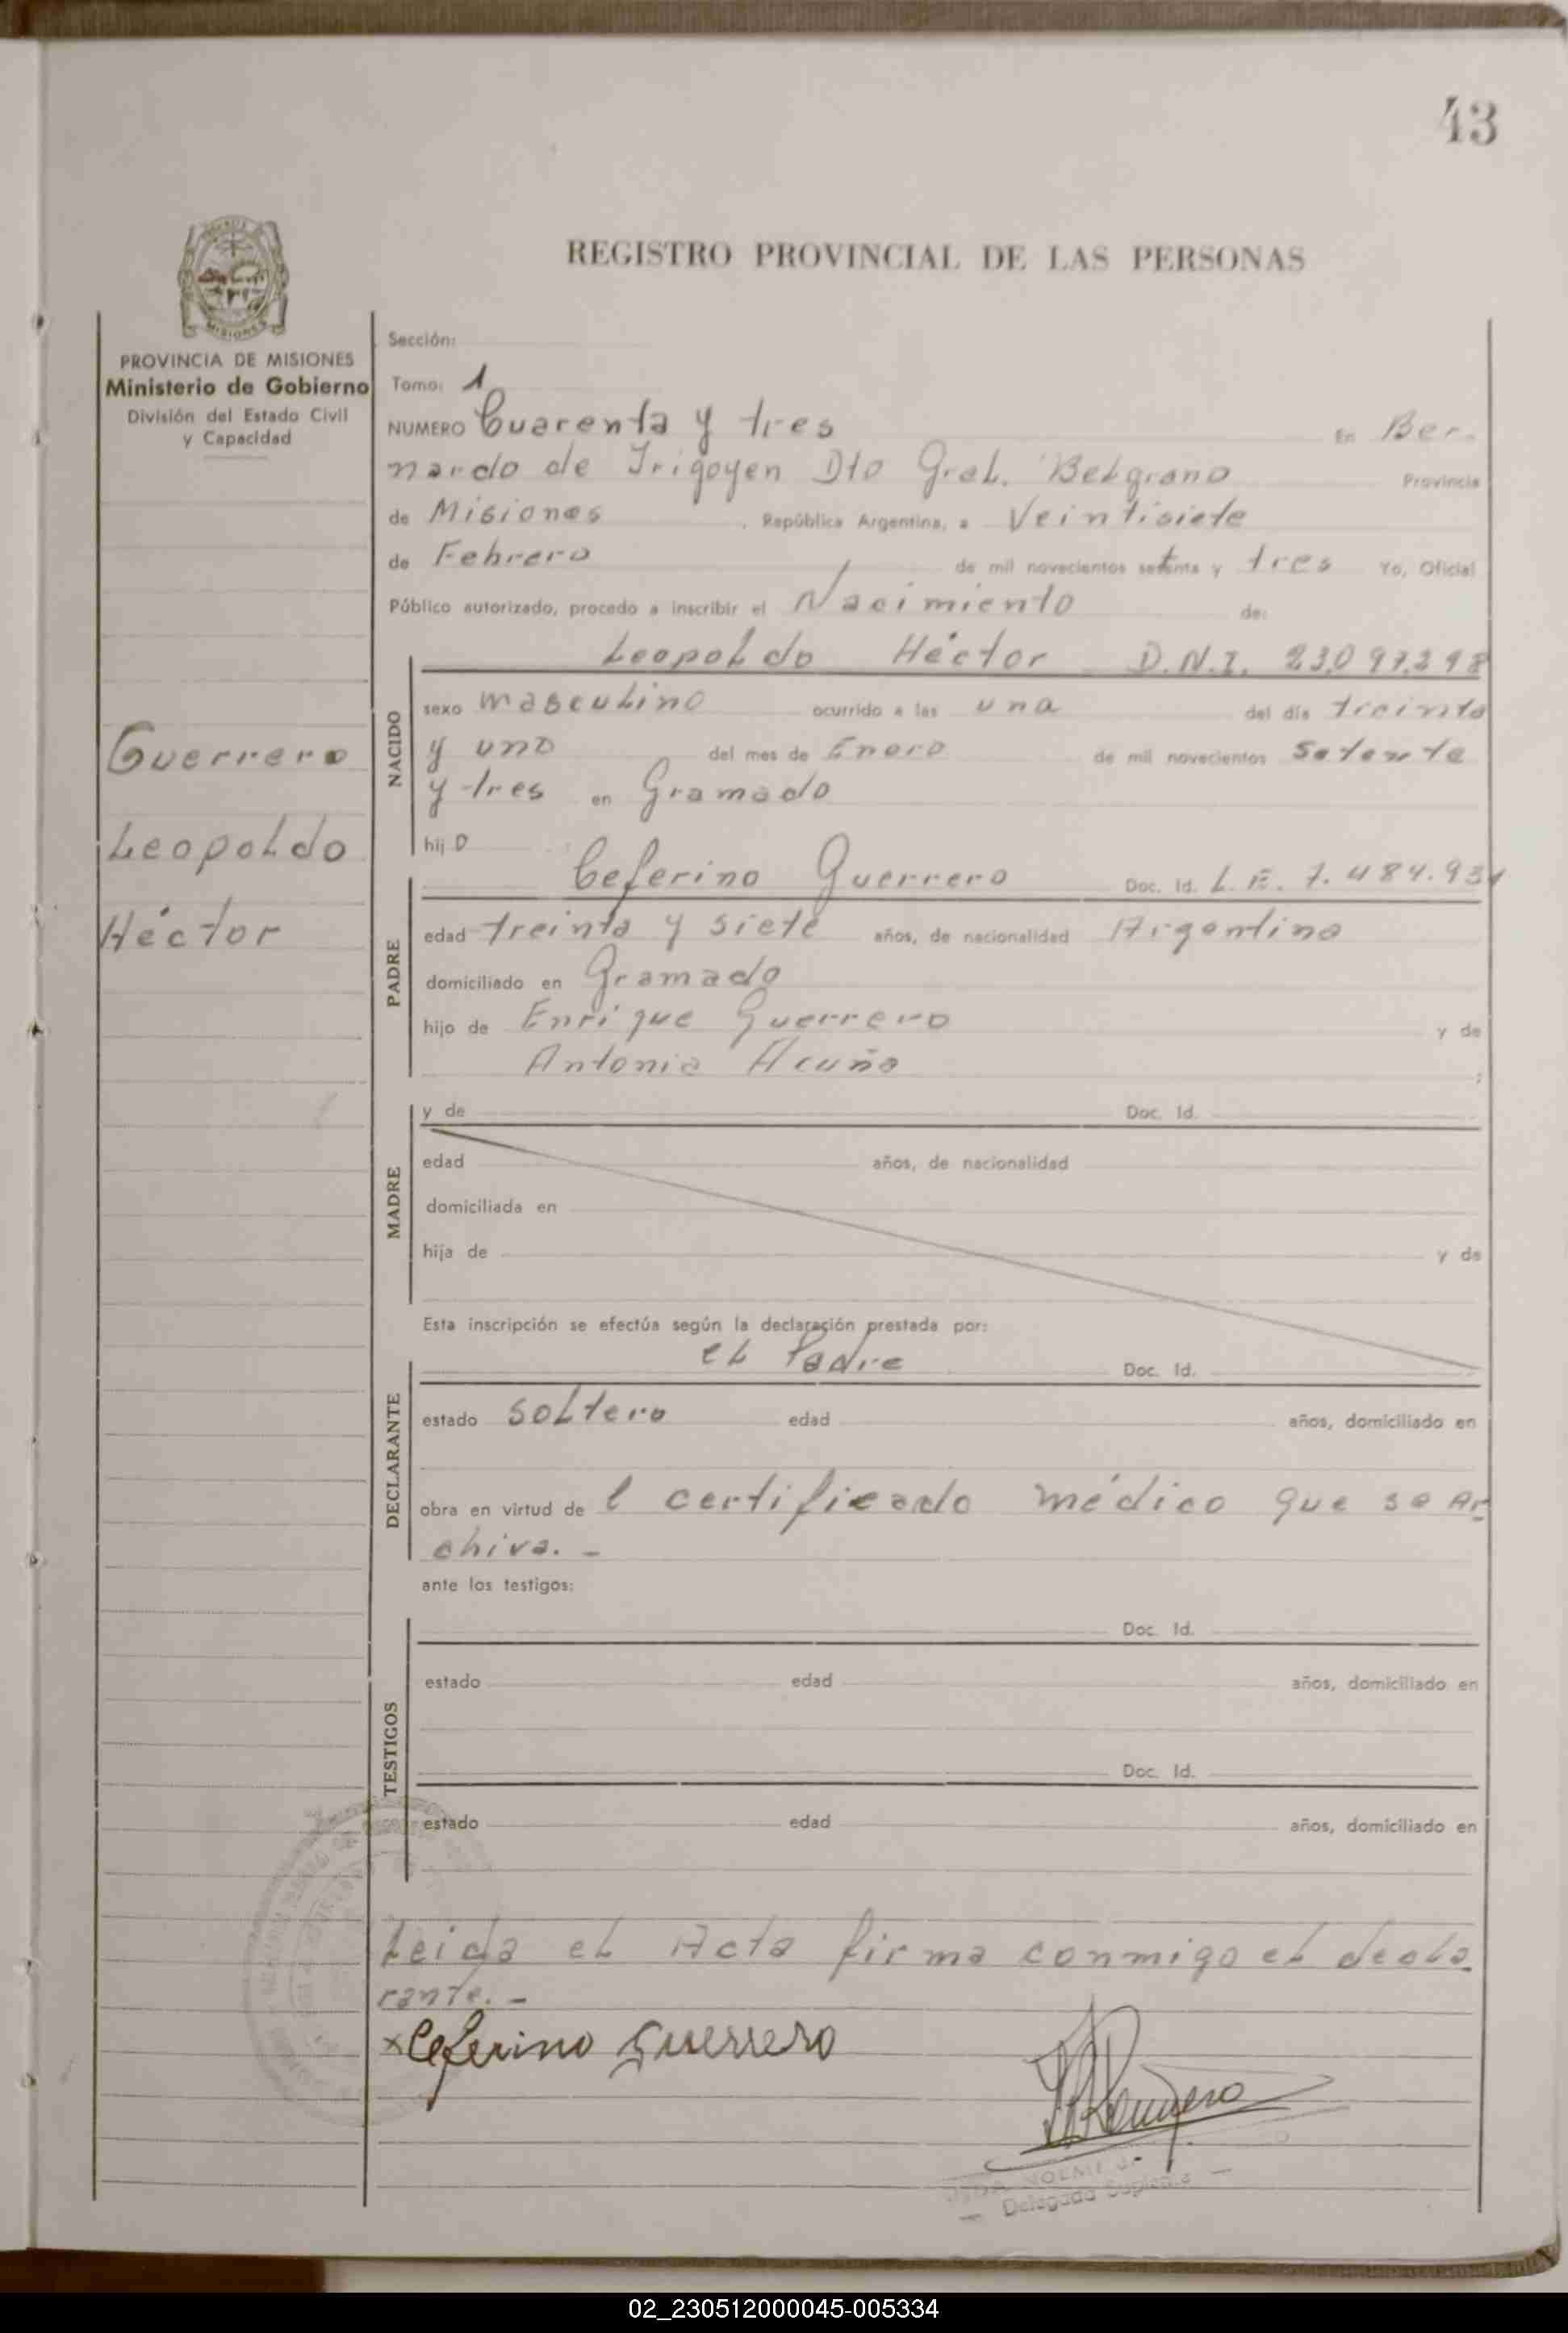 43
REGISTRO PROVINCIAL DE LAS PERSONAS
MISIONES
PROVINCIA DE MISIONES
Ministerio de Gobierno
División del Estado Civil
y Capacidad
Guerrero
Leopoldo
Héctor
Sección:
Tomo: 1
NUMERO Cuarenta y tres En Ber-
nardo de Irigoyen Dto Gral. Belgrano Provincia
de Misiones, República Argentina, a Veintisiete
de Febrero de mil novecientos setenta y tres Yo, Oficial
Público autorizado, procedo a inscribir el Nacimiento de:
NACIDO
Leopoldo Héctor D.N.I. 23.097.298
sexo masculino ocurrido a las una del día treinta
y uno del mes de Enero de mil novecientos Setenta
y tres en Gramado
hijo
PADRE
Ceferino Guerrero Doc. Id. L.E. 7.484.931
edad treinta y siete años, de nacionalidad Argentina
domiciliado en Gramado
hijo de Enrique Guerrero y de
Antonia Acuña ;
MADRE
y de Doc. Id.
edad años, de nacionalidad
domiciliada en
hija de y de
Esta inscripción se efectúa según la declaración prestada por:
DECLARANTE
el Padre Doc. Id.
estado soltero edad años, domiciliado en
obra en virtud de l certificado médico que se Ar-
chiva. -
ante los testigos:
TESTIGOS
Doc. Id.
estado edad años, domiciliado en
Doc. Id.
estado edad años, domiciliado en
Leida el Acta firma conmigo el decla-
rante. -
x Ceferino Guerrero
Delegada Suplente
02_230512000045-005334